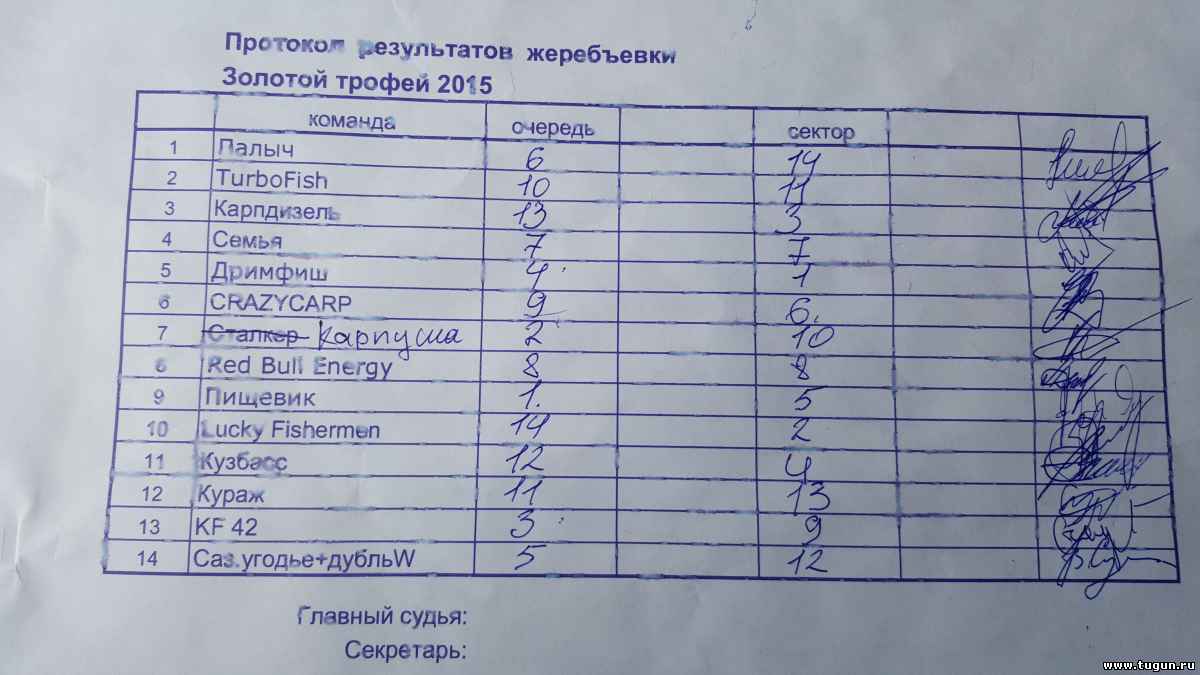 Протокол результатов жеребъевки
Золотой трофей 2015
команда очередь сектор
1 Палыч 6 14
2 TurboFish 10 11
3 Карпдизель 13 3
4 Семья 7 7
5 Дримфиш 4 1
6 CRAZYCARP 9 6.
7 Сталкер Карпуша 2 10
8 Red Bull Energy 8 8
9 Пищевик 1. 5
10 Lucky Fishermen 14 2
11 Кузбасс 12 4
12 Кураж 11 13
13 KF 42 3 9
14 Саз.угодье+дубльW 5 12
Главный судья:
Секретарь:
www.tugun.ru